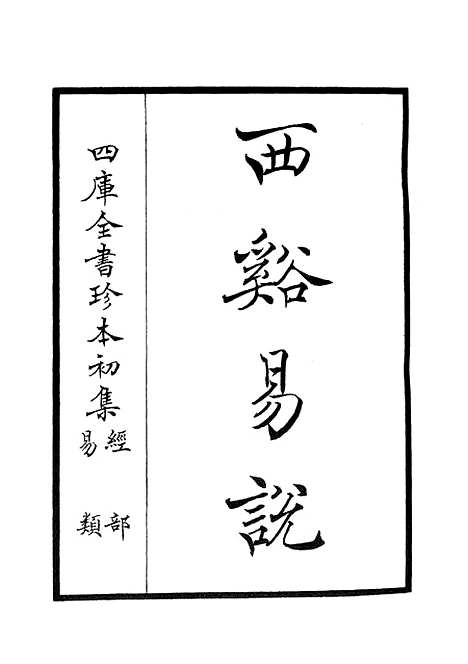 西谿易說
四庫全書珍本初集
經部
易類